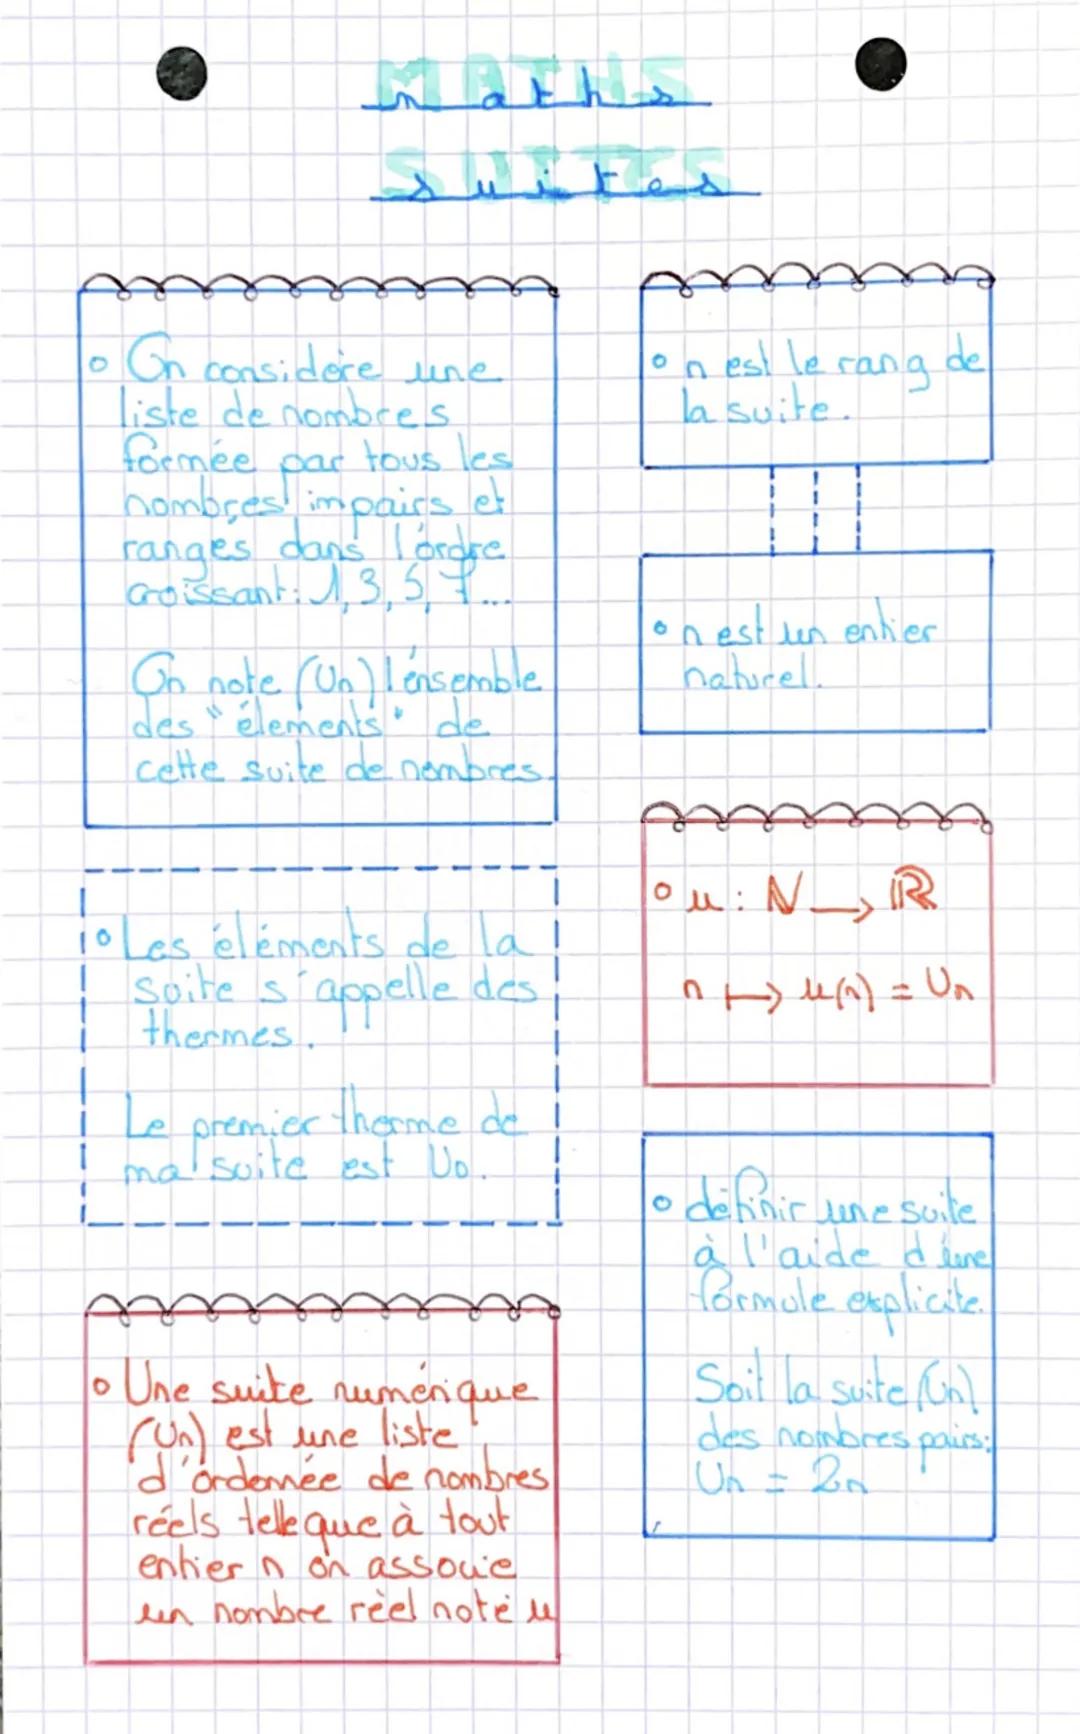 MATHS
maths
SUITES
suites
° On considère une
liste de nombres
formée par tous les
nombres impairs et
rangés dans l'ordre
croissant: 1, 3, 5, 7...
On note (Un) l'ensemble
des "élements" de
cette suite de nombres.
° Les éléments de la
suite s'appelle des
thermes.
Le premier therme de
ma suite est U0.
° Une suite numérique
(Un) est une liste
d'ordonnée de nombres
réels telle que à tout
entier n on associe
un nombre réel noté u
° n est le rang de
la suite.
° n est un entier
naturel.
° u : ℕ → ℝ
n ↦ u(n) = Un
° définir une suite
à l'aide d'une
formule explicite.
Soit la suite (Un)
des nombres pairs:
Un = 2n